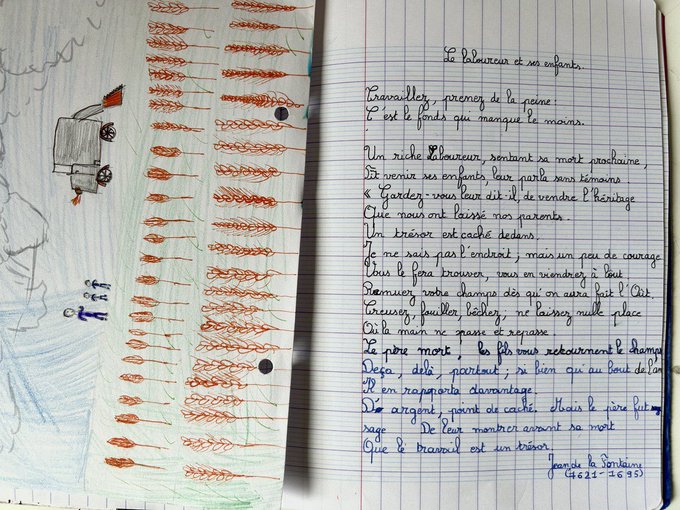 Le laboureur et ses enfants.
Travaillez, prenez de la peine :
C'est le fonds qui manque le moins.
Un riche Laboureur, sentant sa mort prochaine,
Fit venir ses enfants, leur parla sans témoins.
« Gardez-vous leur dit-il, de vendre l'héritage
Que nous ont laissé nos parents.
Un trésor est caché dedans.
Je ne sais pas l'endroit ; mais un peu de courage
Vous le fera trouver, vous en viendrez à bout
Remuez votre champs dès qu'on aura fait l'Oût.
Creusez, fouiller, bêchez, ne laissez nulle place
Où la main ne passe et repasse.
Le père mort, les fils vous retournent le champs
Deça, delà, partout ; si bien qu'au bout de l'an
Il en raporta davantage.
D'argent, point de caché. Mais le père fut
sage De leur montrer avant sa mort
Que le travail est un trésor.
Jean de la Fontaine
(1621-1695)